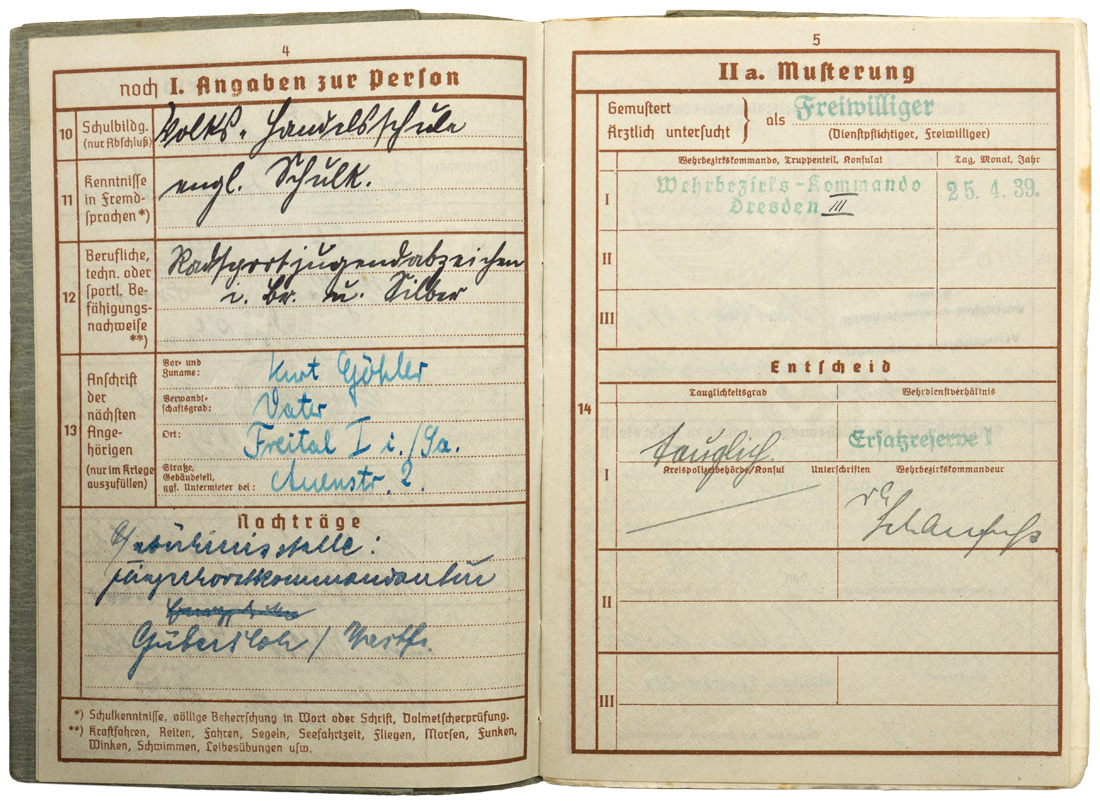 4
noch I. Angaben zur Person
10 Schulbildg. (nur Abschluß)
Volks. Handelsschule
11 Kenntnisse in Fremdsprachen *)
engl. Schulk.
12 Berufliche, techn. oder sportl. Befähigungsnachweise **)
Radsportjugendabzeichen
i. Br. u. Silber
13 Anschrift der nächsten Angehörigen (nur im Kriege auszufüllen)
Vor- und Zuname: Kurt Göhler
Verwandtschaftsgrad: Vater
Ort: Freital I i./Sa.
Straße, Gebäudeteil, ggf. Untermieter bei: Auenstr. 2.
Nachträge
Fliegerhorstkommandantur
Gütersloh / Westf.
*) Schulkenntnisse, völlige Beherrschung in Wort oder Schrift, Dolmetscherprüfung.
**) Kraftfahren, Reiten, Fahren, Segeln, Seefahrtzeit, Fliegen, Morsen, Funken,
Winken, Schwimmen, Leibesübungen usw.
5
II a. Musterung
Gemustert
Ärztlich untersucht } als Freiwilliger
(Dienstpflichtiger, Freiwilliger)
Wehrbezirkskommando, Truppenteil, Konsulat
Tag, Monat, Jahr
I
Wehrbezirks-Kommando
Dresden III
25. 4. 39.
II
III
Entscheid
14
Tauglichkeitsgrad
Wehrdienstverhältnis
I
tauglich.
Ersatzreserve I
Kreispolizeibehörde/Konsul Unterschriften Wehrbezirkskommandeur
II
III